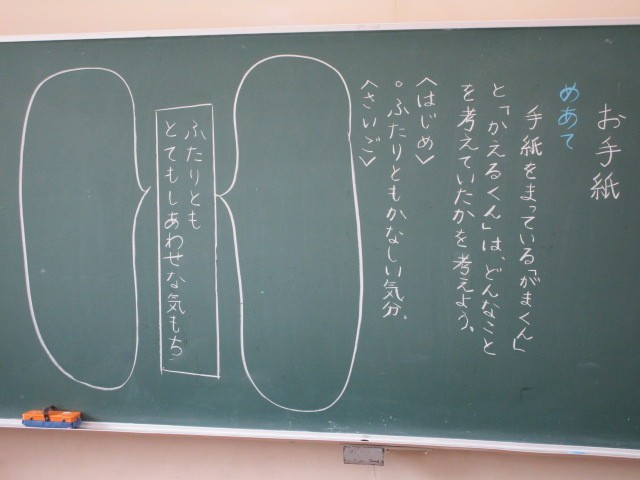 お手紙
めあて
手紙をまっている「がまくん」
と「かえるくん」は、どんなこと
を考えていたかを考えよう。
〈はじめ〉
。ふたりともかなしい気分。
〈さいご〉
ふたりとも
とてもしあわせな気もち